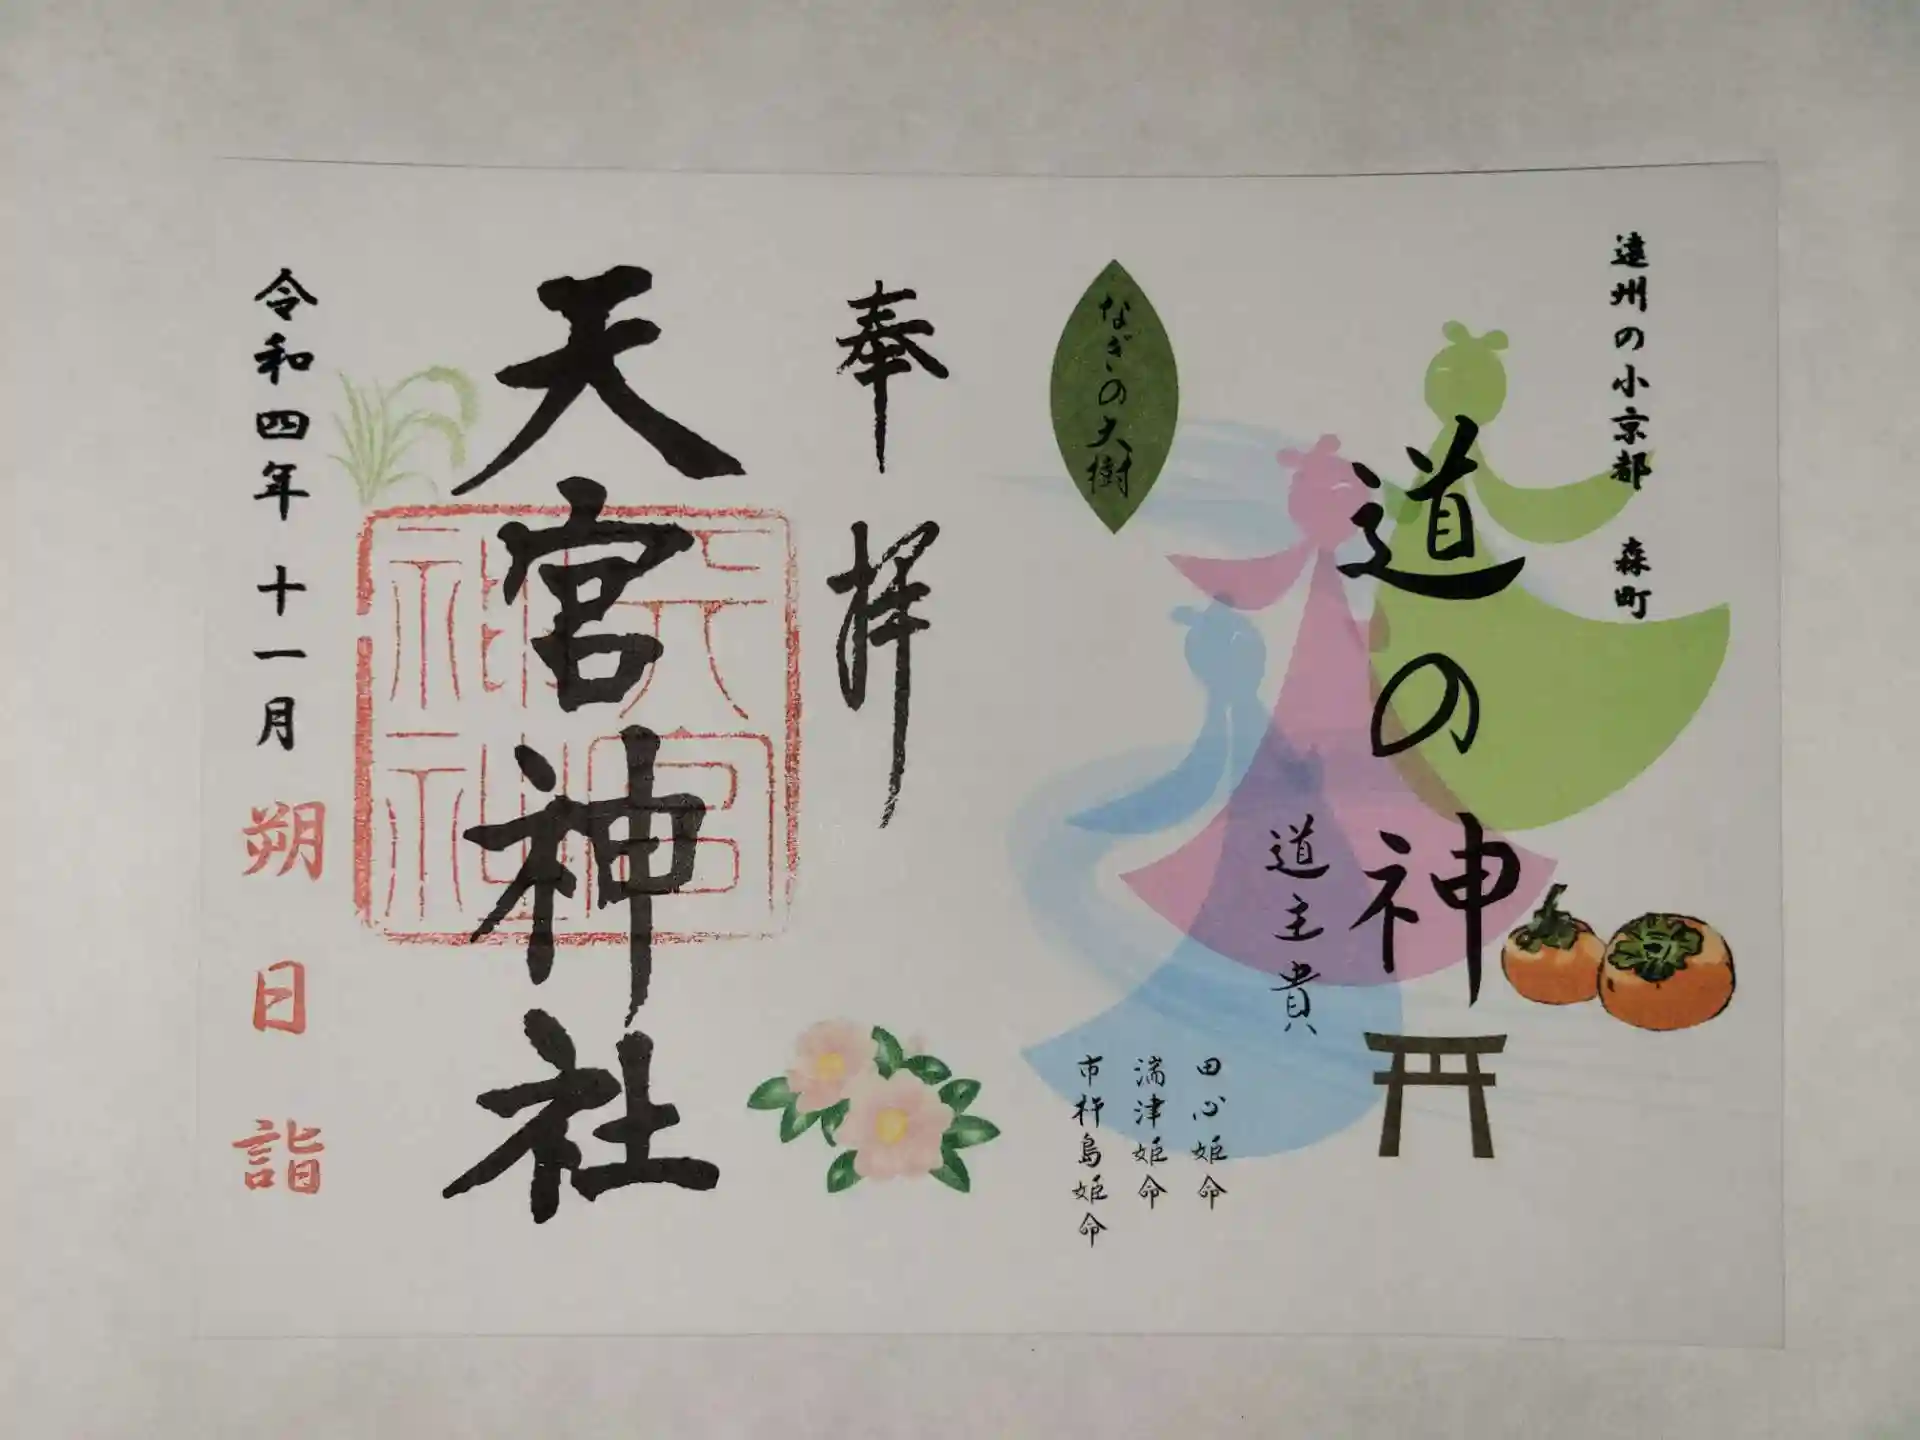 遠州の小京都　森町
道の神
道主貴
田心姫命
湍津姫命
市杵島姫命
なぎの大樹
奉拝
天宮神社
天宮神社
令和四年 十一月 朔日詣